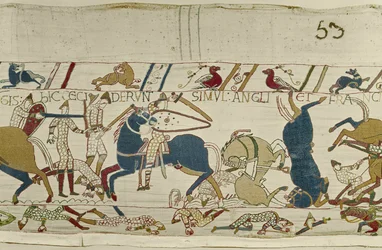 53
GIS hIC CECI DERVN SIMVL: ANGLI ET FRA